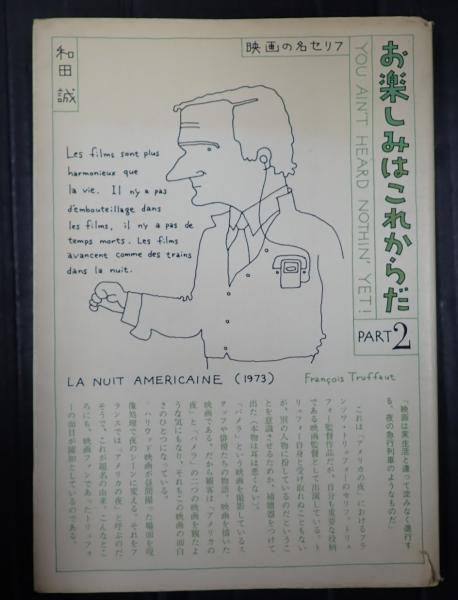 お楽しみはこれからだ
YOU AIN'T HEARD NOTHIN' YET!
PART2
映画の名セリフ
和田 誠
Les films sont plus
harmonieux que
la vie. Il n'y a pas
d'embouteillage dans
les films, il n'y a pas de
temps morts. Les films
avancent comme des trains
dans la nuit.
LA NUIT AMERICAINE (1973)
François Truffaut
「映画は実生活と違って淀みなく進行す
る。夜の急行列車のようなものだ」
これは「アメリカの夜」におけるフラ
ンソワ・トリュフォーのセリフ。トリュ
フォー監督作品だが、自分も重要な役柄
である映画監督として出演している。ト
リュフォー自身と受け取れぬこともない
が、別の人物に扮しているのだというこ
とを意識させるためか、補聴器をつけて
出た（本物は耳は悪くない）。
「パメラ」という映画を撮影しているス
タッフや俳優たちの物語。映画を描いた
映画である。だから観客は「アメリカの
夜」と「パメラ」の二つの映画を観たよ
うな気にもなり、それもこの映画の面白
さのひとつになっている。
ハリウッド映画が昼間撮った場面を現
像処理で夜のシーンに変える。それをフ
ランスでは「アメリカの夜」と呼ぶのだ
そうで、これが題名の由来。こんなとこ
ろにも、映画ファンであったトリュフォ
ーの面目が躍如としているのである。